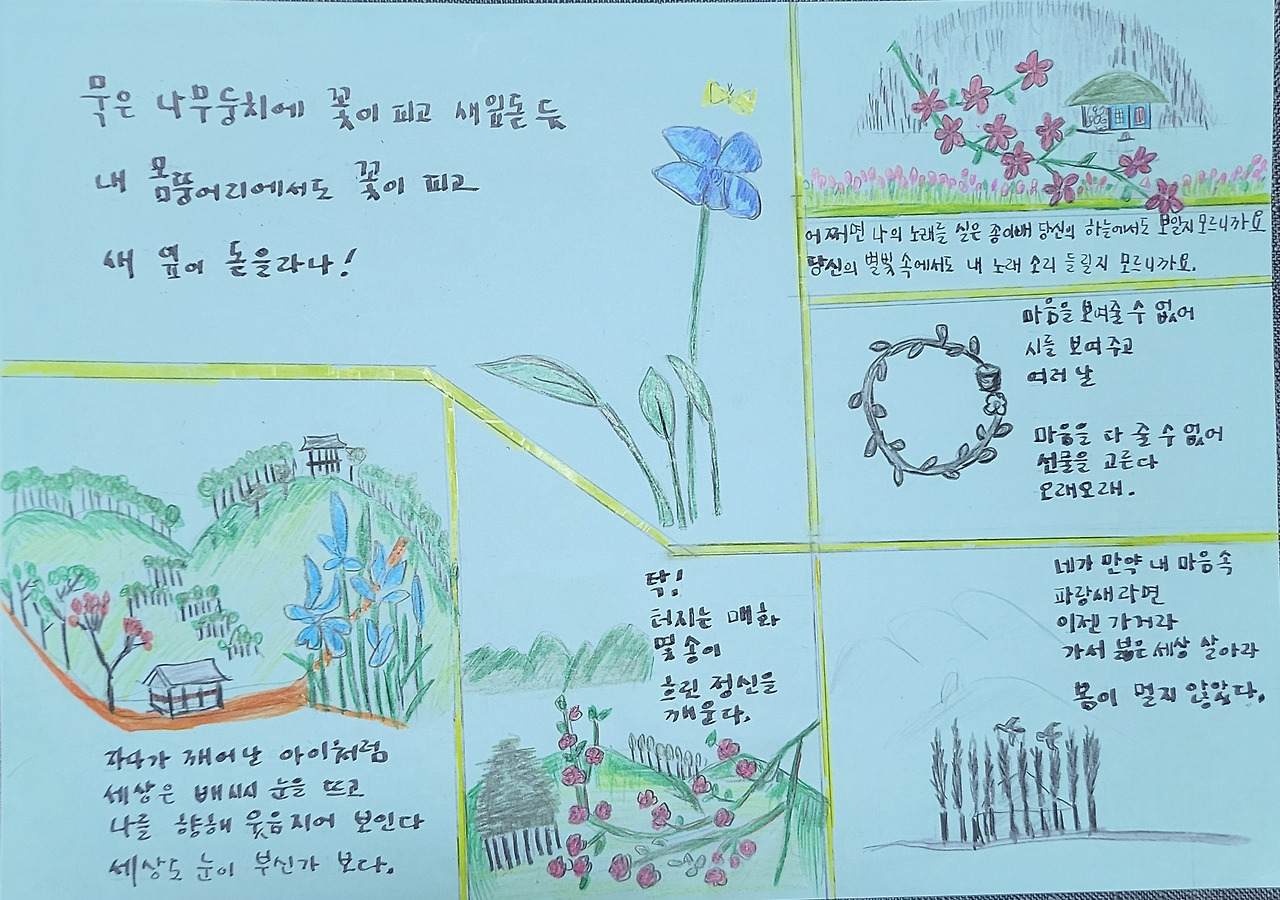 묵은 나무둥치에 꽃이 피고 새잎돋 듯
내 몸뚱어리에서도 꽃이 피고
새 잎이 돋을라나!
어쩌면 나의 노래를 실은 종이배 당신의 하늘에서도 보일지 모르니까요
당신의 별빛 속에서도 내 노래 소리 들릴지 모르니까요.
마음을 보여줄 수 없어
시를 보여 주고
여러 날
마음을 다 줄 수 없어
선물을 고른다
오래오래.
네가 만약 내 마음속
파랑새라면
이젠 가거라
가서 붉은 세상 살아라
봄이 멀지 않았다.
탁!
터지는 매화
몇 송이
흐린 정신을
깨운다.
자다가 깨어난 아이처럼
세상은 배시시 눈을 뜨고
나를 향해 웃음지어 보인다
세상도 눈이 부신가 보다.